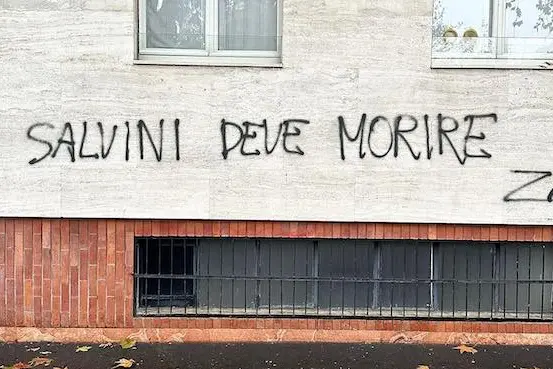 SALVINI DEVE MORIRE